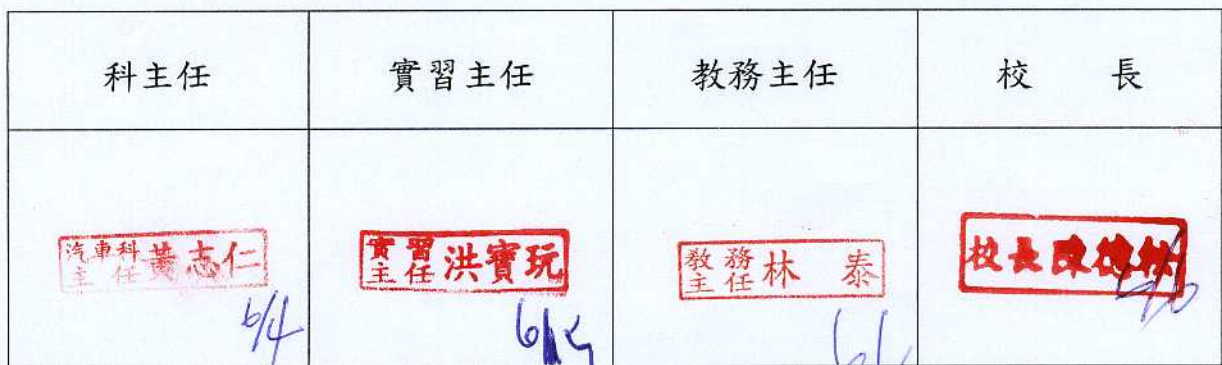 科主任 實習主任 教務主任 校長
汽車科主任 黃志仁 實習主任 洪寶玩 教務主任 林泰 校長陳德
6/4